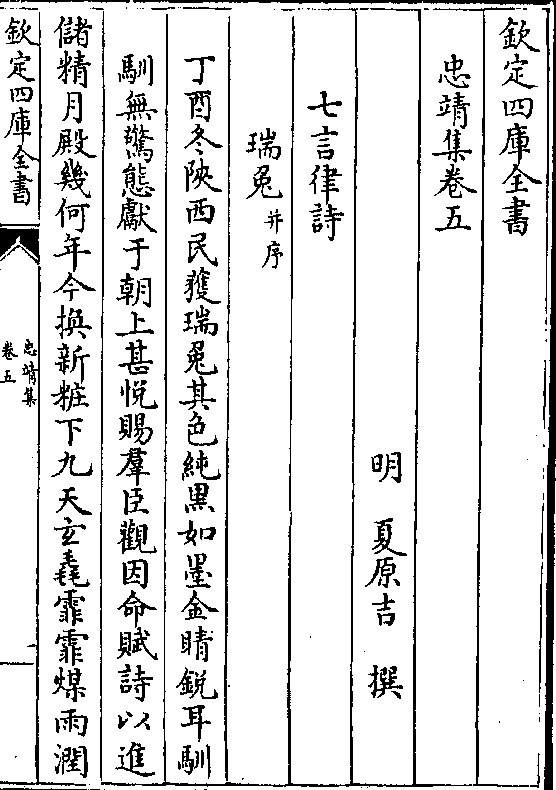 欽定四庫全書
忠靖集卷五
明 夏原吉 撰
七言律詩
瑞兔并序
丁酉冬陜西民獲瑞兔其色純黒如墨金睛銳耳馴
馴無驚態獻于朝上甚悅賜羣臣觀因命賦詩以進
儲精月殿幾何年今換新粧下九天玄毳霏霏煤雨潤
欽定四庫全書
忠靖集
卷五
一